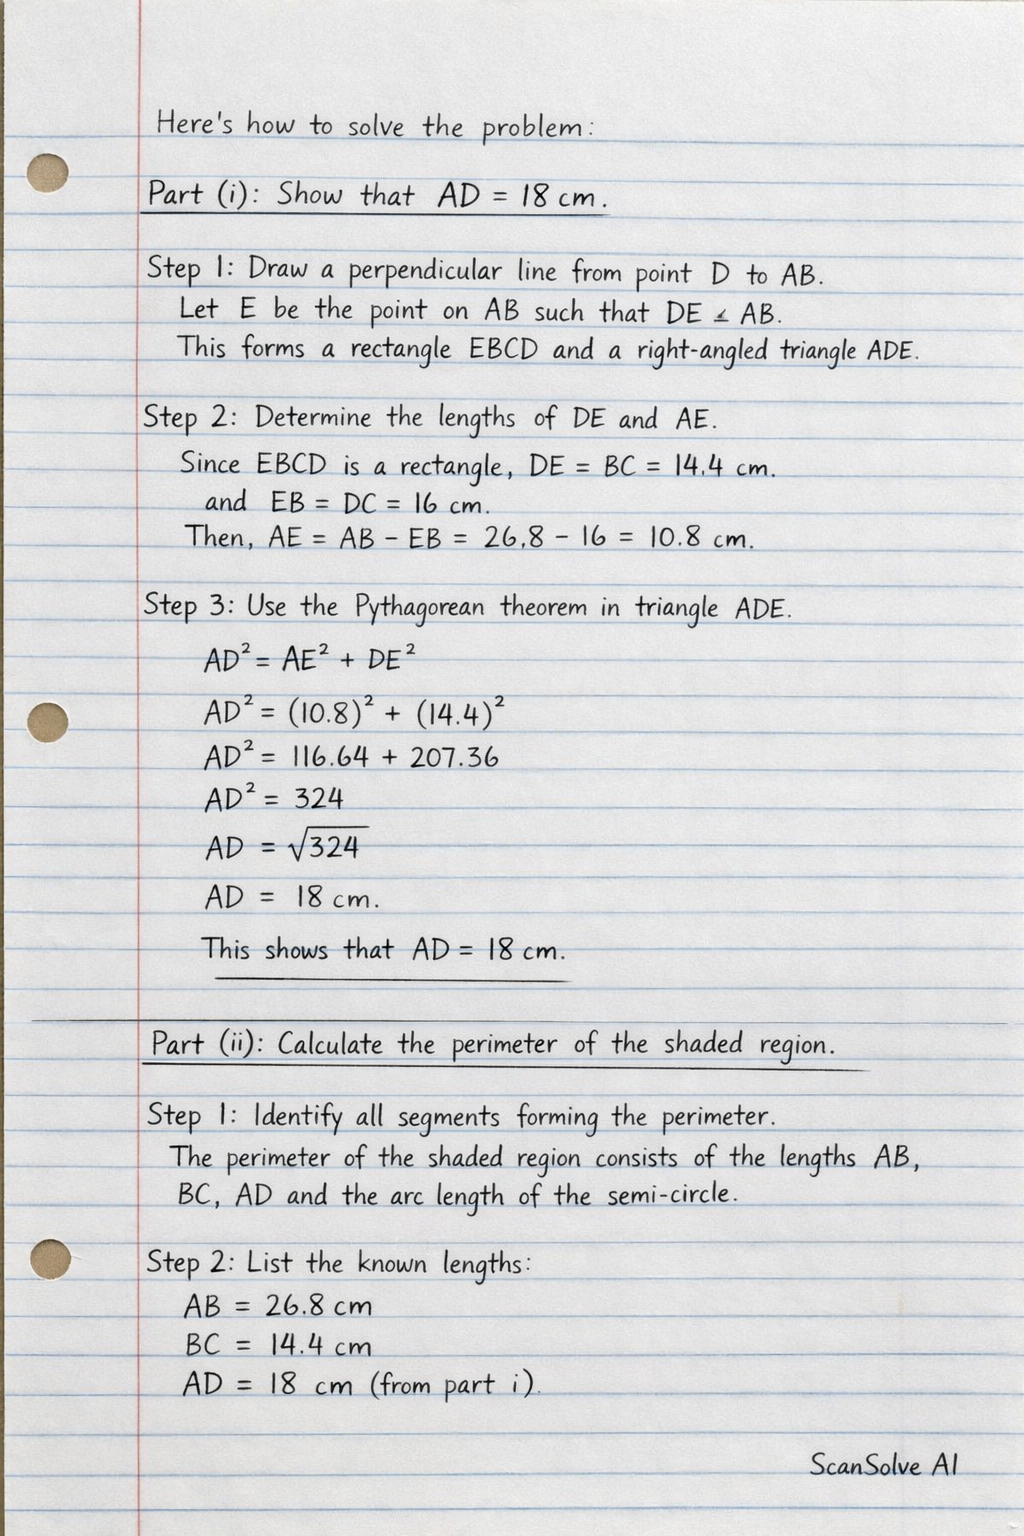 Here's how to solve the problem:
Part (i): Show that AD = 18 cm.
Step 1: Draw a perpendicular line from point D to AB.
Let E be the point on AB such that DE ⊥ AB.
This forms a rectangle EBCD and a right-angled triangle ADE.
Step 2: Determine the lengths of DE and AE.
Since EBCD is a rectangle, DE = BC = 14.4 cm.
and EB = DC = 16 cm.
Then, AE = AB - EB = 26.8 - 16 = 10.8 cm.
Step 3: Use the Pythagorean theorem in triangle ADE.
AD² = AE² + DE²
AD² = (10.8)² + (14.4)²
AD² = 116.64 + 207.36
AD² = 324
AD = √324
AD = 18 cm.
This shows that AD = 18 cm.
Part (ii): Calculate the perimeter of the shaded region.
Step 1: Identify all segments forming the perimeter.
The perimeter of the shaded region consists of the lengths AB,
BC, AD and the arc length of the semi-circle.
Step 2: List the known lengths:
AB = 26.8 cm
BC = 14.4 cm
AD = 18 cm (from part i).
ScanSolve AI